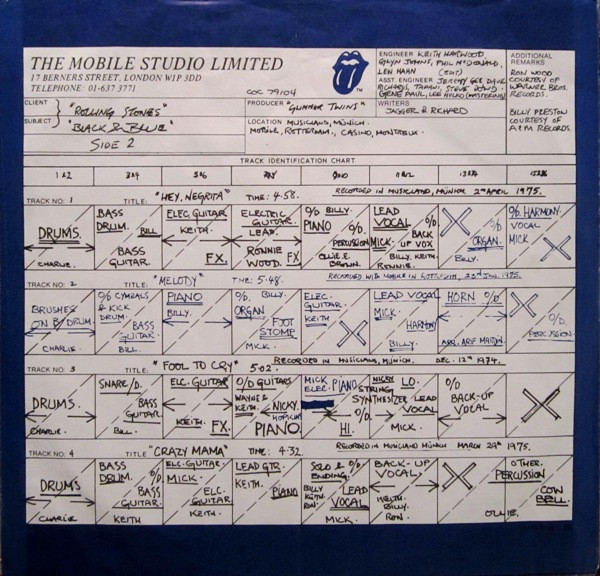 THE MOBILE STUDIO LIMITED
17 BERNERS STREET, LONDON W1P 3DD
TELEPHONE: 01-637 3771
COC 79104
TM
ENGINEER KEITH HARWOOD,
GLYN JOHNS, PHIL McDONALD,
LEW HAHN
ASST. ENGINEER JEREMY GEE, DAVE
RICHARDS, TAPANI,
GENE PAUL, LEE HULKO (MASTERING)
ADDITIONAL
REMARKS
RON WOOD
COURTESY OF
WARNER BROS.
RECORDS.
BILLY PRESTON
COURTESY OF
A&M RECORDS.
CLIENT "ROLLING STONES"
SUBJECT "BLACK & BLUE"
SIDE 2
PRODUCER "GLIMMER TWINS"
LOCATION MUSICLAND, MUNICH.
MOBILE, ROTTERDAM, CASINO, MONTREUX.
WRITERS
JAGGER & RICHARD
TRACK IDENTIFICATION CHART
1&2 3&4 5&6 7&8 9&10 11&12 13&14 15&16
TRACK NO: 1 TITLE: "HEY, NEGRITA" TIME: 4.58. RECORDED IN MUSICLAND, MUNICH 2nd APRIL 1975.
DRUMS.
CHARLIE.
BASS
DRUM. BILL
BASS
GUITAR.
ELEC GUITAR
KEITH.
FX.
ELECTRIC
GUITAR.
LEAD.
RONNIE
WOOD. FX
O/D BILLY.
PIANO
O/D
PERCUSSION
OLLIE E.
BROWN.
LEAD
VOCAL
MICK.
O/D
BACK
UP VOX
BILLY, KEITH
RONNIE.
O/D
ORGAN.
BILLY.
O/D HARMONY
VOCAL
MICK
TRACK NO: 2 TITLE: "MELODY" TIME: 5.48. RECORDED WITH MOBILE IN ROTTERDAM, 23rd JAN. 1975.
BRUSHES
ON B/DRUM.
CHARLIE.
O/D CYMBALS
& KICK
DRUM.
BASS
GUITAR.
BILL.
PIANO
BILLY.
O/D. BILLY.
ORGAN
FOOT
STOMP
MICK.
ELEC.
GUITAR.
KEITH
LEAD VOCAL
MICK.
HARMONY
BILLY.
HORN O/D.
ARR. ARIF MARDIN.
O/D.
PERCUSSION
TRACK NO: 3 TITLE: "FOOL TO CRY" 5.02. RECORDED IN MUSICLAND, MUNICH. DEC. 12th 1974.
DRUMS.
CHARLIE.
SNARE/D.
BASS
GUITAR.
BILL.
ELC. GUITAR
KEITH. FX.
O/D GUITARS
WAYNE &
KEITH.
NICKY
HOPKINS
PIANO.
MICK
ELEC. PIANO
O/D.
HI.
NICKY
STRING
SYNTHESIZER
LO.
LEAD
VOCAL
MICK.
O/D
BACK-UP
VOCAL
TRACK NO: 4 TITLE: "CRAZY MAMA" TIME: 4.32. RECORDED IN MUSICLAND MUNICH MARCH 29th 1975.
DRUMS
CHARLIE
BASS
DRUM. O/D
BASS
GUITAR.
KEITH
ELC. GUITAR.
MICK.
ELC.
GUITAR
KEITH.
LEAD GTR.
KEITH.
PIANO
SOLO &
ENDING.
BILLY
KEITH
RON
LEAD
VOCAL
MICK.
BACK-UP
VOCAL.
KEITH
BILLY.
RON.
OTHER.
PERCUSSION
COW
BELL.
OLLIE.